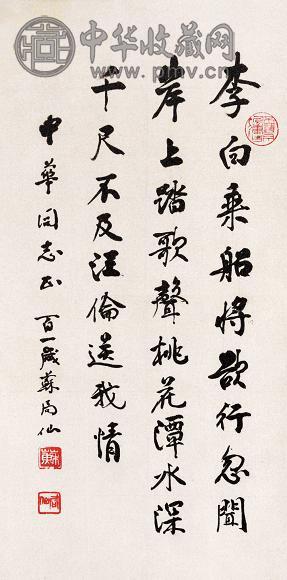 中华收藏网
www.pmv.cn
李白乘船将欲行忽闻
岸上踏歌聲桃花潭水深
千尺不及汪倫送我情
中華同志正 百一歲蘇局仙